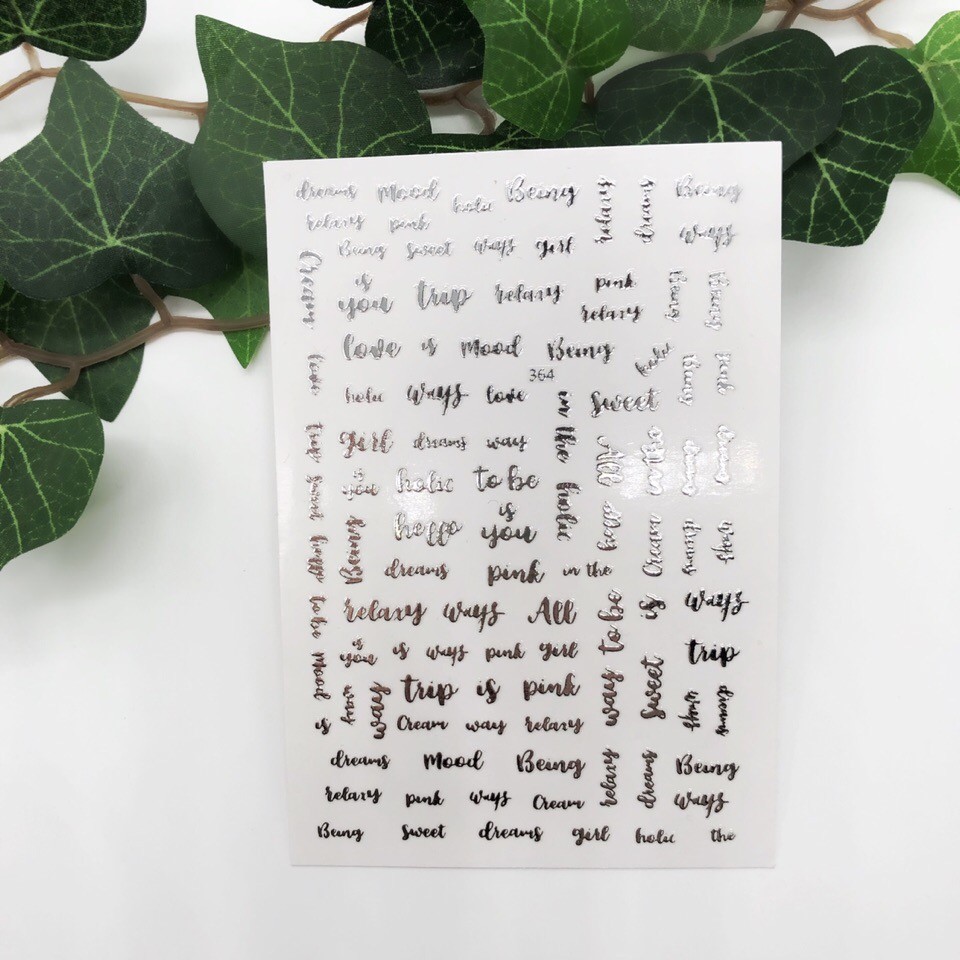 dreams Mood holic Being relaxy dreams Being
relaxy pink ways
Being sweet ways girl
Cream is you trip relaxy pink relaxy Being Being
love is Mood Being holic
364
love holic ways love in the sweet Being pink
girl dreams way All in the dreams dreams
trip is you holic to be holic
sweet Being heppo is you heppo Cream dreams ways
heppo dreams pink in the
to be relaxy ways All to be is ways
is you is ways pink girl trip
Mood way way trip is pink way sweet ways dreams
is Cream way relaxy
dreams Mood Being relaxy dreams Being
relaxy pink ways Cream ways
Being sweet dreams girl holic the